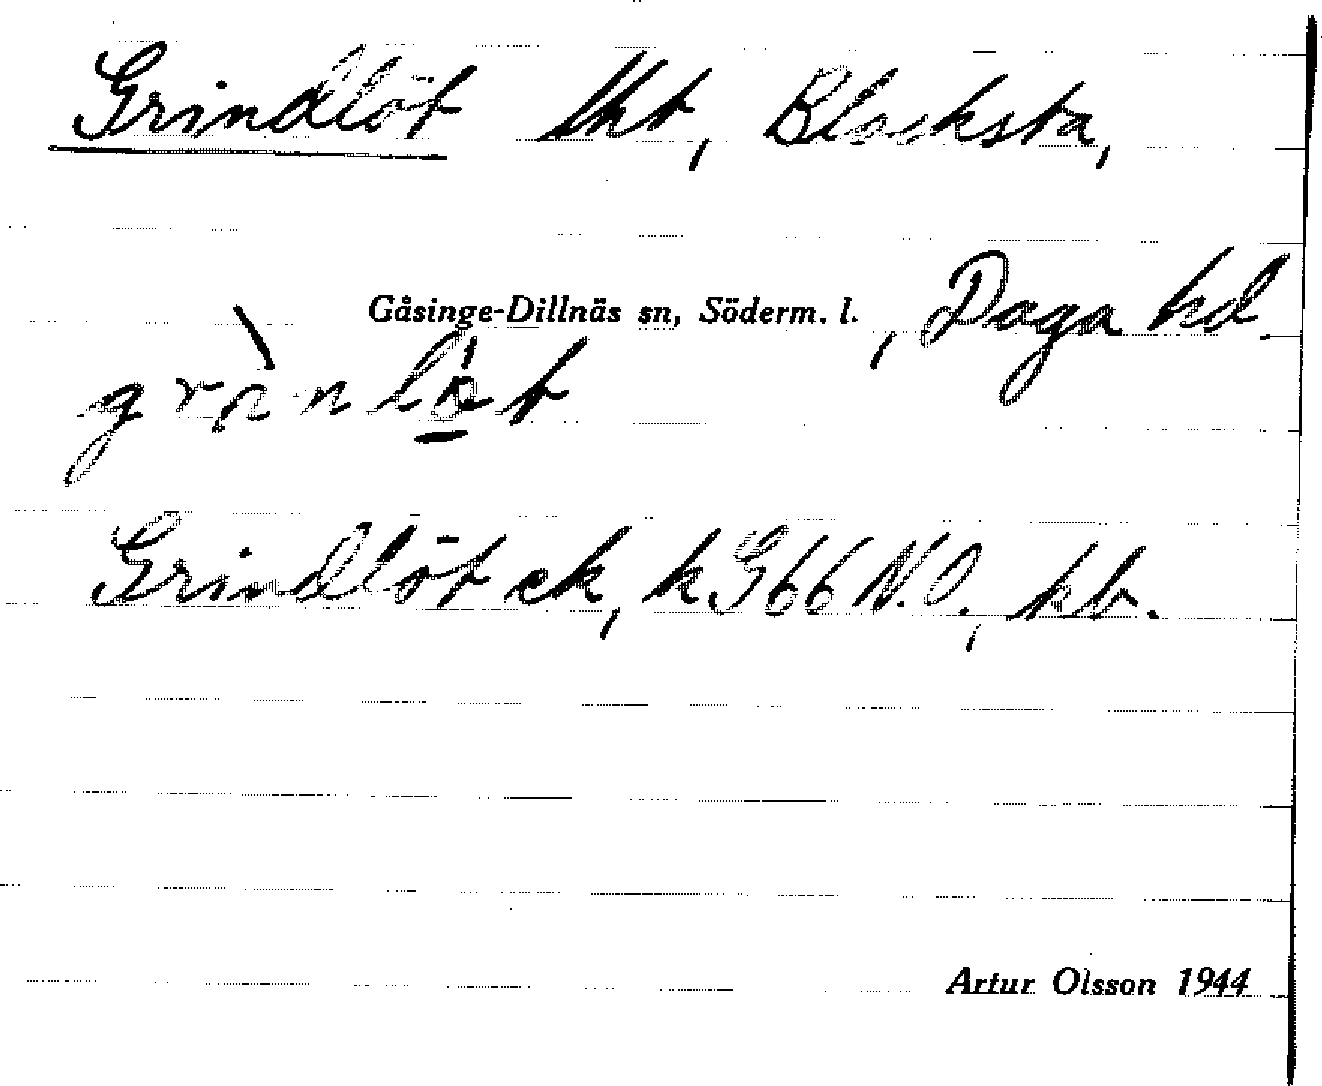 Grindlöt lht, Blacksta,
Gåsinge-Dillnäs sn, Söderm. l., Daga hd.
Grindlöt ek, k G66 N.O., kb.
Artur Olsson 1944